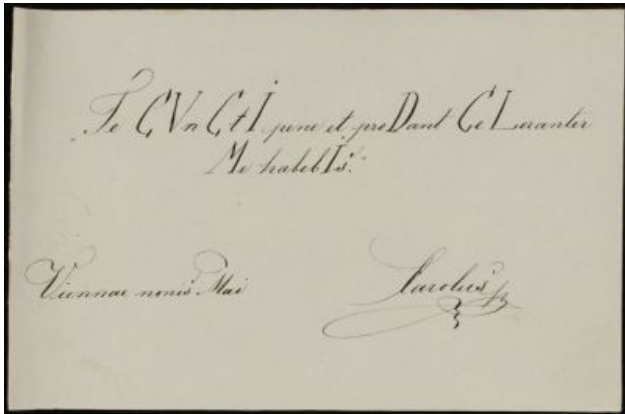 „Te CVnCtI pene et proDant CeLeranter
Me habebIs.“
Viennae nonis Mai
Carolus